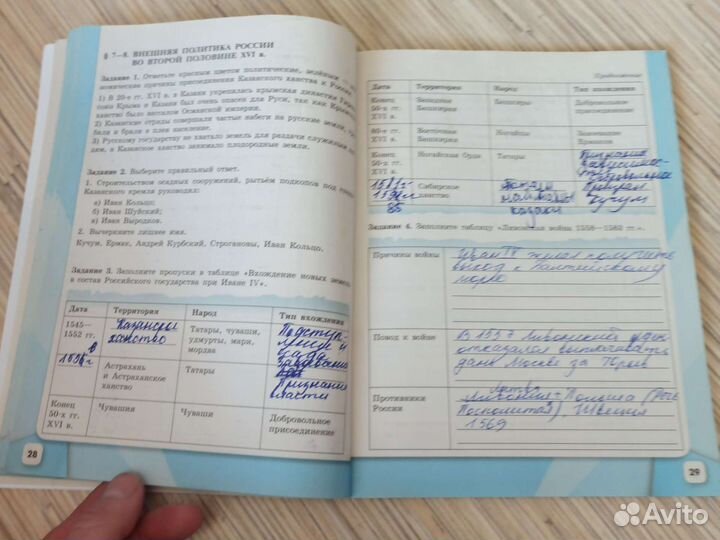 § 7—8. ВНЕШНЯЯ ПОЛИТИКА РОССИИ
ВО ВТОРОЙ ПОЛОВИНЕ XVI в.
Задание 1. Отметьте красным цветом политические, зелёным —
номические причины присоединения Казанского ханства к России
1) В 20-е гг. XVI в. в Казани укрепилась крымская династия
союз Крыма и Казани был очень опасен для Руси, так как Крымское
ханство было вассалом Османской империи.
2) Казанские отряды совершали частые набеги на русские земли,
били и брали в плен население.
3) Русскому государству не хватало земель для раздачи служилым
дям, а Казанское ханство занимало плодородные земли.
Задание 2. Выберите правильный ответ.
1. Строительством осадных сооружений, рытьём подкопов под стены
Казанского кремля руководил:
а) Иван Кольцо;
б) Иван Шуйский;
в) Иван Выродков.
2. Вычеркните лишнее имя.
Кучум, Ермак, Андрей Курбский, Строгановы, Иван Кольцо.
Задание 3. Заполните пропуски в таблице «Вхождение новых земель
в состав Российского государства при Иване IV».
Дата Территория Народ Тип вхождения
1545—
1552 гг. Казанское
ханство Татары, чуваши,
удмурты, мари,
мордва
в
1556г Астрахань
и Астраханское
ханство Татары Признание
власти
Конец
50-х гг.
XVI в. Чувашия Чуваши Добровольное
присоединение
28
Продолжение
Дата Территория Народ Тип вхождения
Конец
50-х гг.
XVI в. Западная
Башкирия Башкиры Добровольное
присоединение
80-е гг.
XVI в. Восточная
Башкирия Ногайцы Завоевание
Ермаком
Конец
50-х гг.
XVI в. Ногайская Орда Татары Признание
1581г
85 Сибирское
ханство казаки Кучум
Задание 4. Заполните таблицу «Ливонская война 1558—1583 гг.».
Причины войны Иван IV желал получить
выход к Балтийскому
морю
Повод к войне В 1557 Ливонский орден
отказался выплачивать
дань Москве за Юрьев
Противники
России Литва
Ливония + Польша (Речь
Посполитая), Швеция
1569
29
Avito